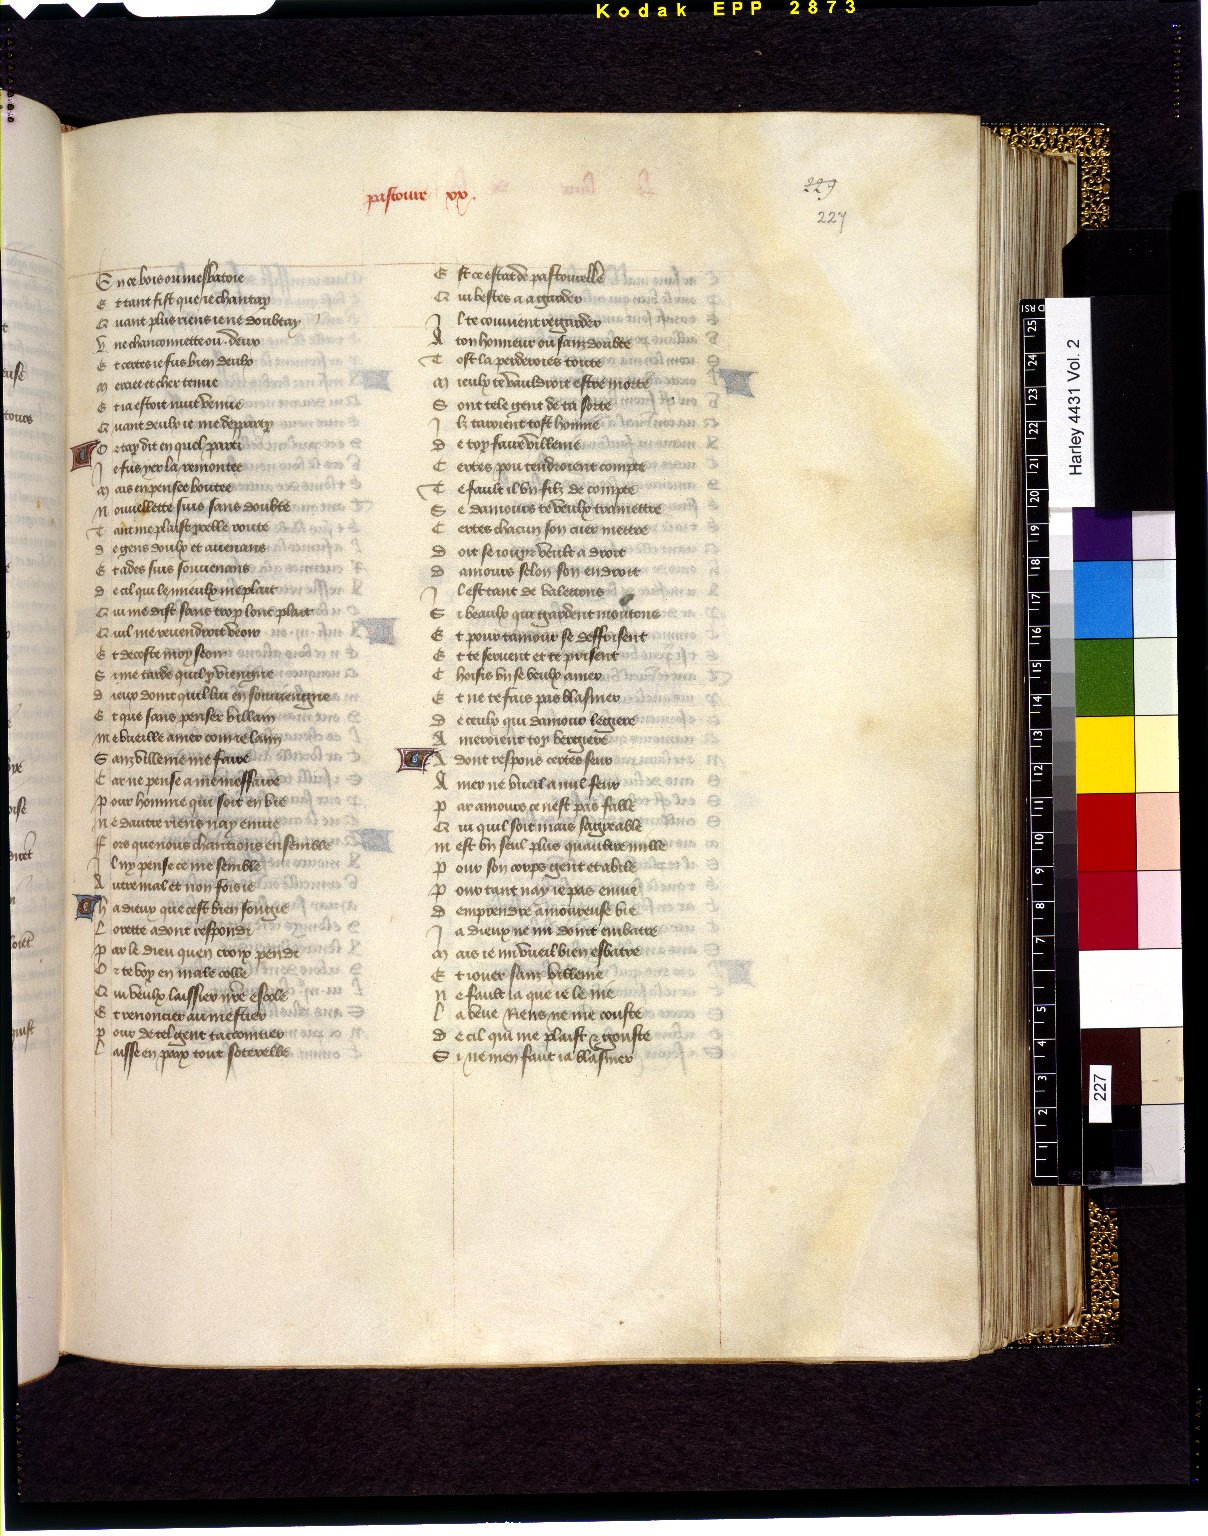 Kodak EPP 2873
pastoure xx.
229
227
En ce bois ou mesbatoie
Et tant fist que ie chantay
Quant plus riens ie ne doubtay
Une chanconnette ou .deux
Et certes ie fus bien deulx
merciee et cher tenue
Et ia estoit nuit venue
Quant deulx ie me departy
Or ay dit en quel parti
Je fus per la remontee
mais en pensee boutee
Nouvellette suis sans doubte
Tant me plaist celle route
de gens doulx et auenans
Et ades suis souuenans
de cil qui le mieulx me plait
Qui me dist sans trop lonc plait
Quil me reuendroit veoir
Et decoste moy seoir
Si me tarde quil y viengne
dieux doint quil lui en souuiengne
Et que sans penser villain
me vueille amer com ie laim
Sanz villenie me faire
Car ne pense a me meffaire
Pour homme qui soit en vie
Ne dautre riens nay enuie
Fors que nous chantions ensemble
Il ny pense ce me semble
Autre mal et non fois ie
Ha dieux que cest bien songie
Lorette adont respondi
Par le dieu quen croix pendi
Or te voy en male colle
Qui veulx laissier nre escole
Et renoncier au mestier
Pour de tel gent taccointier
Laisse en paix tout soterelle
Est ce estat de pastourelle
Qui bestes a a garder
Il te couuient regarder
A ton honneur ou sanz doubte
Tost la perderoies toute
mieulx te vauldroit estre morte
Sont tele gent de ta sorte
Ilz taroient tost honnie
de toy faire villenie
Certes pou tendroient compte
Te fault il vn filz de compte
Se damours te veulx tremettre
Certes chacun son cuer mettre
doit se iouyr veult a droit
damours selon son endroit
Il est tant de valettons
Si beaulx qui gardent moutons
Et pour tamour se desfrisent
Et te seruent et te prisent
Choisis vn se veulx amer
Et ne te fais pas blasmer
de ceulx qui damour legiere
Ameroient toy bergiere
Adont respons certes seur
Amer ne vueil a nul feur
Par amours ce nest pas fable
Qui quil soit mais saigreable
mest vn seul plus quautre mille
Pour son corps gent et abile
Pour tant nay ie pas enuie
demprendre amoureuse vie
Ja dieux ne mi doint embatre
mais ie mi vueil bien esbatre
Et iouer sanz villenie
Ne fault ia que ie le nie
La veue riens ne me couste
de cil qui me plaist & gouste
Si ne men fault ia blasmer
Harley 4431 Vol. 2
227
25
24
23
22
21
20
19
18
17
16
15
14
13
12
11
10
9
8
7
5
4
3
2
1